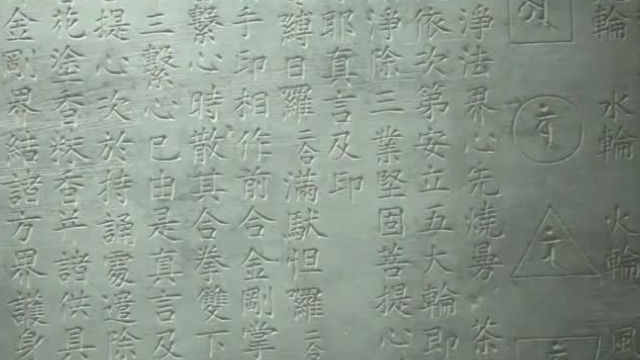 輪 水輪 火輪 風
淨法界心先燒曼荼
依次第安立五大輪即
淨除三業堅固菩提心
耶真言及印
縛日羅二合滿馱怛羅二合
手印相作前合金剛掌
繫心時散其合拳雙下
三繫心已由是真言及
提心次於持誦處遣除
花塗香粖香并諸供具
金剛界結諸方界護身